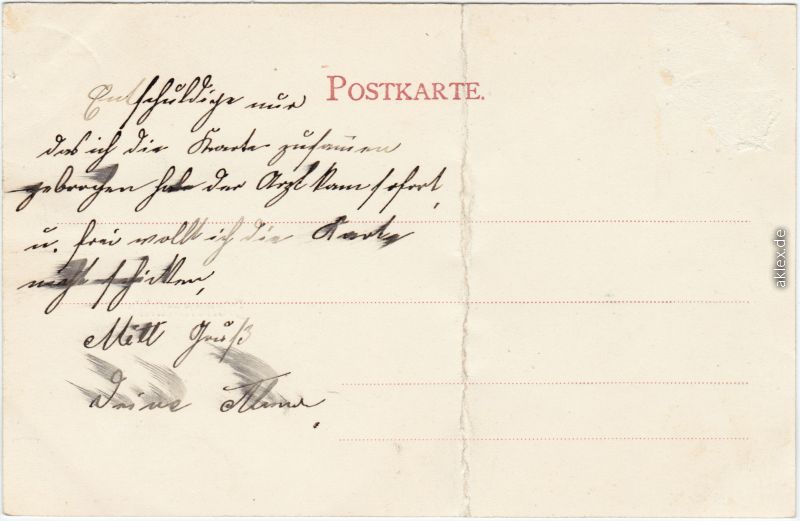 POSTKARTE.
Entschuldige nur
das ich die Karte zusammen
gebrochen habe der Arzt kam sofort,
u. frei wollt ich die Karte
nicht schicken,
Mitt Gruß
Deine
aklex.de